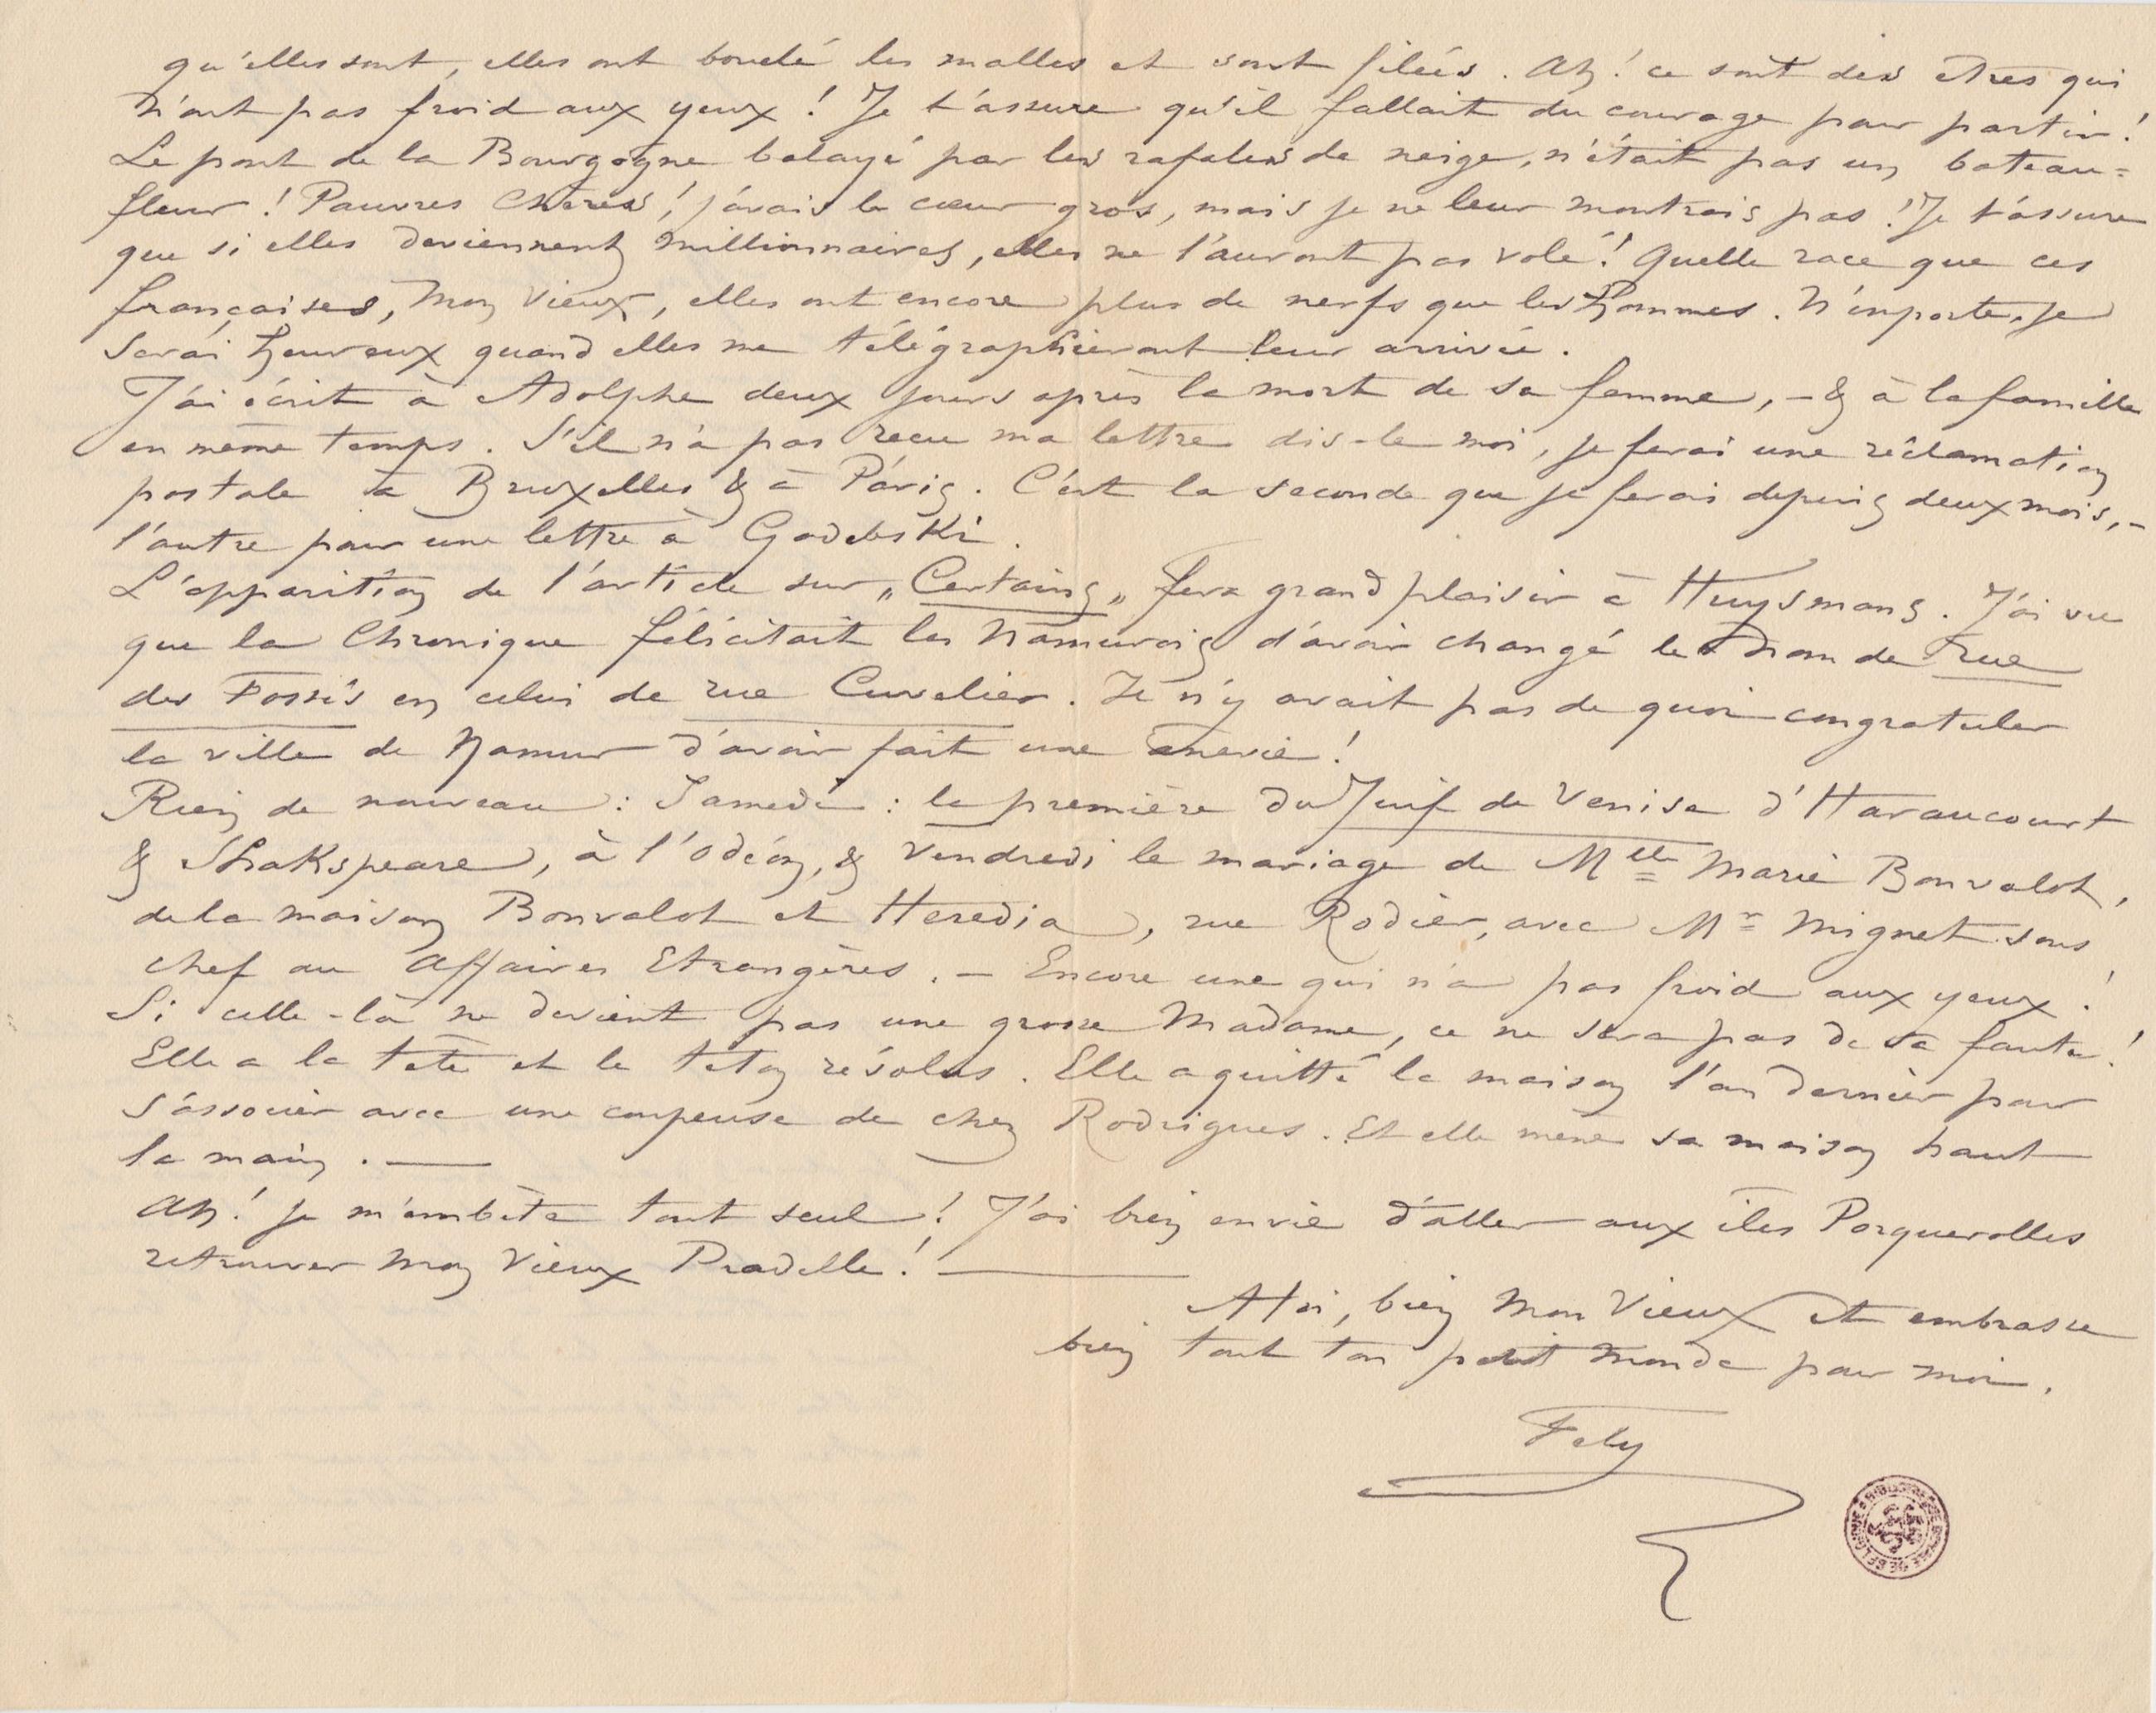 qu'elles sont, elles ont bouclé les malles et sont filées. Ah! ce sont des êtres qui
n'ont pas froid aux yeux! Je t'assure qu'il fallait du courage pour partir!
Le pont de la Bourgogne balayé par les rafales de neige, n'était pas un bateau=
fleur! Pauvres Chères! j'avais le cœur gros, mais je ne leur montrais pas! Je t'assure
que si elles deviennent millionnaires, elles ne l'auront pas volé! Quelle race que ces
françaises, mon Vieux, elles ont encore plus de nerfs que les hommes. N'importe, je
serai heureux quand elles me télégraphieront leur arrivée.
J'ai écrit à Adolphe deux jours après la mort de sa femme, – & à la famille
en même temps. S'il n'a pas reçu ma lettre dis-le moi, je ferai une réclamation
postale à Bruxelles & à Paris. C'est la seconde que je ferai depuis deux mois, –
l'autre pour une lettre à Godebski.
L'apparition de l'article sur „Certains„ fera grand plaisir à Huysmans. J'ai vu
que la Chronique félicitait les Namurois d'avoir changé le nom de rue
des Fossés en celui de rue Cuvelier. Il n'y avait pas de quoi congratuler
la ville de Namur d'avoir fait une anerie!
Rien de nouveau: Samedi: la première du Juif de Venise d'Haraucourt
& Shakspeare, à l'Odéon, & Vendredi le mariage de Mlle Marie Bonvalot,
de la maison Bonvalot et Heredia, rue Rodier, avec Mr Mignet sous
chef au Affaires Etrangères. – Encore une qui n'a pas froid aux yeux!
Si celle-là ne devient pas une grosse Madame, ce ne sera pas de sa faute!
Elle a la tête et le teton résolus. Elle a quitté la maison l'an dernier pour
s'associer avec une coupeuse de chez Rodrigues. Et elle mène sa maison haut
la main. —
Ah! je m'embête tout seul! J'ai bien envie d'aller aux îles Porquerolles
retrouver mon Vieux Pradelle! —
A toi, bien mon Vieux et embrasse
bien tout ton petit monde pour moi.
Fely